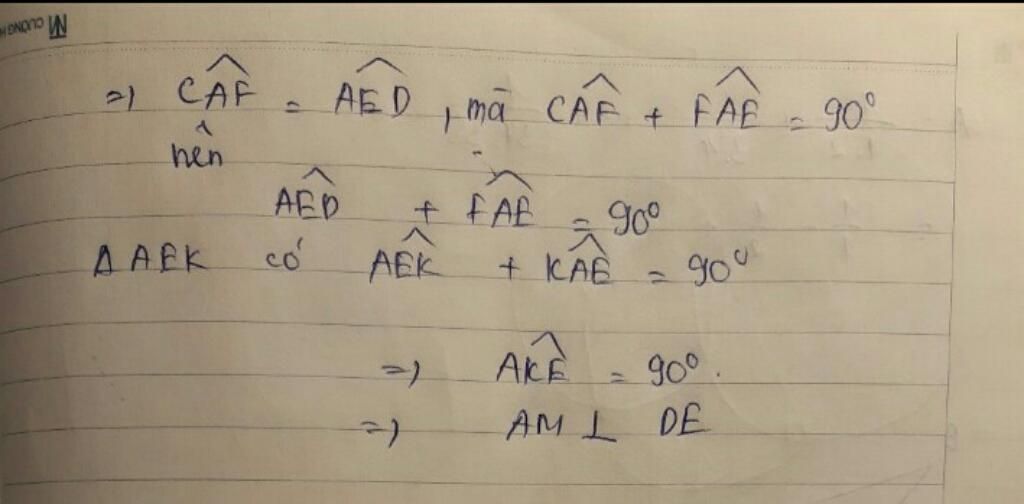 CUONG
=) CAF^ = AED^ , mà CAF^ + FAE^ = 90°
nên
AED^ + FAE^ = 90°
Δ AEK có AEK^ + KAE^ = 90°
=) AKE^ = 90°.
=) AM ⊥ DE